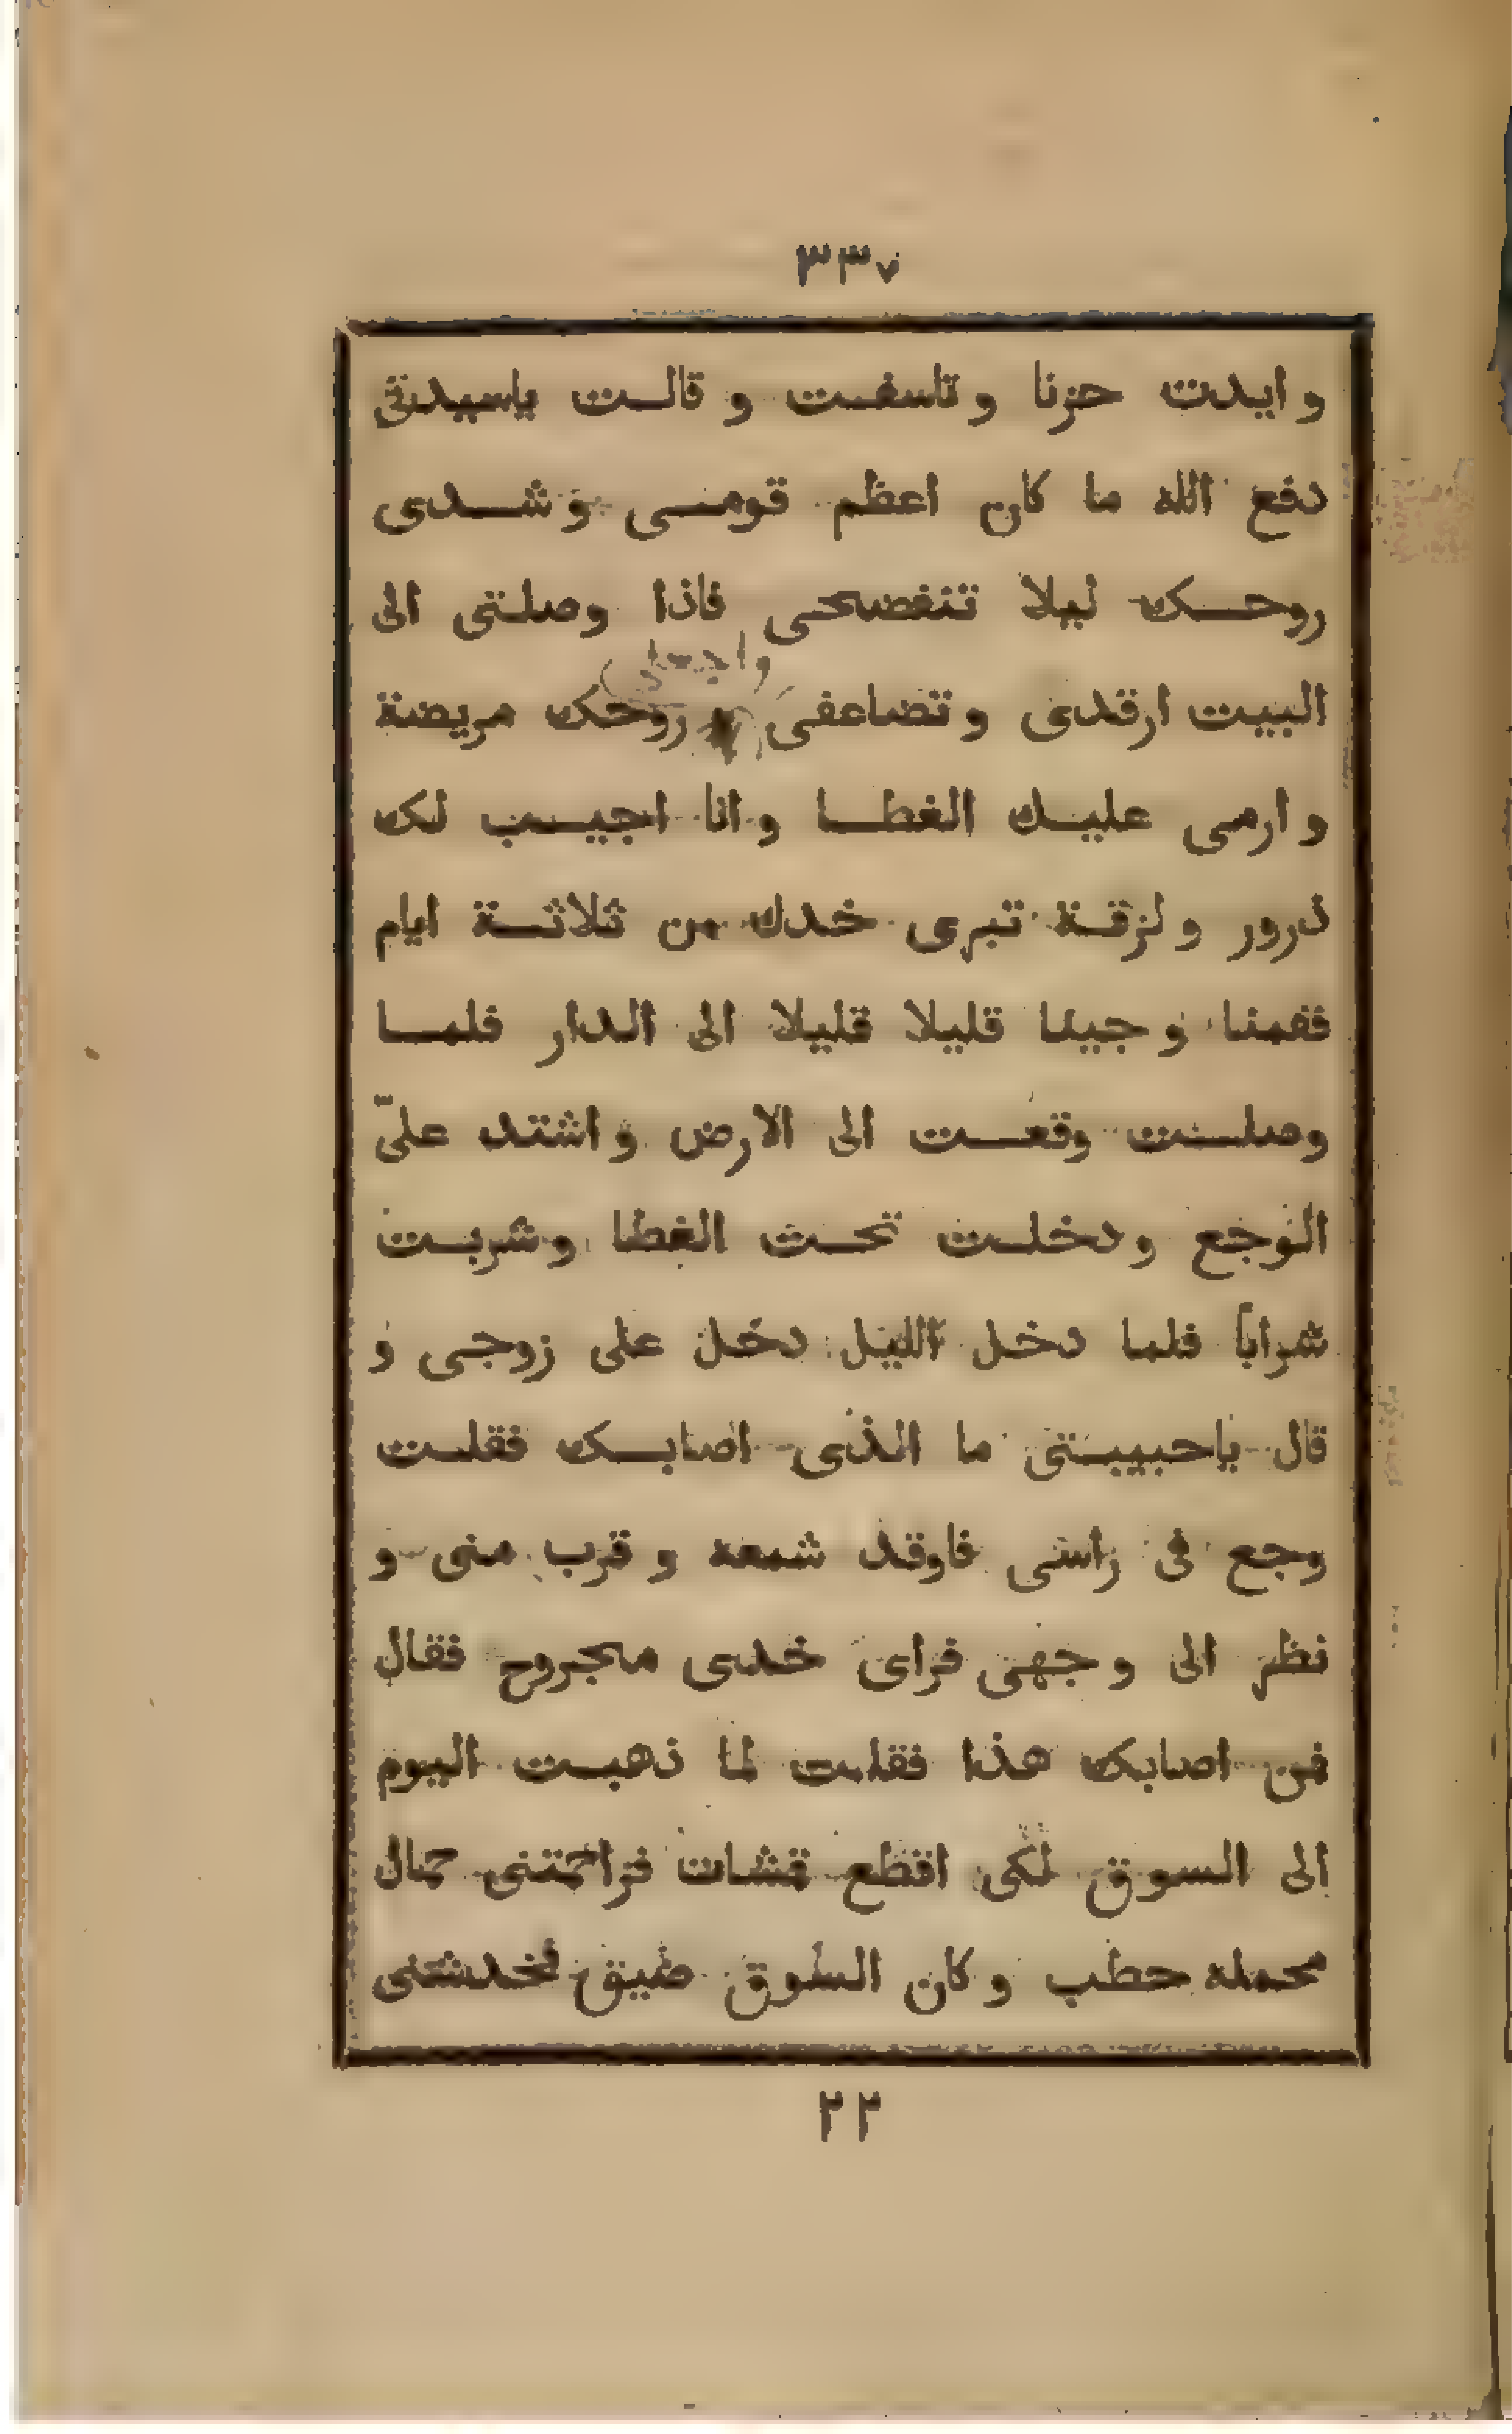 ٣٣٧
وايدت حزنا وتاسفت وقالت ياسيدتى
دفع الله ما كان اعظم قومى وشدى
روحك ليلا تنفضحى فاذا وصلتى الى
واجعلى
البيت ارقدى وتضاعفى روحك مريضة
وارمى عليك الغطا وانا اجيب لك
ذرور ولزقة تبرى خدك من ثلاثة ايام
فقمنا وجينا قليلا قليلا الى الدار فلما
وصلت وقعت الى الارض واشتد علىّ
الوجع ودخلت تحت الغطا وشربت
شرابا فلما دخل الليل دخل على زوجى و
قال ياحبيبتى ما الذى اصابك فقلت
وجع فى راسى فاوقد شمعه وقرب منى و
نظر الى وجهى فراى خدى مجروح فقال
من اصابك هذا فقلت لما ذهبت اليوم
الى السوق لكى اقطع قمشات فزاحمتنى حمال
محمله حطب وكان السوق ضيق فخدشتنى
٢٢